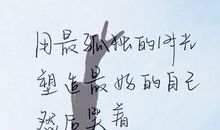 用最孤独的时光
塑造最好的自己
然后笑着